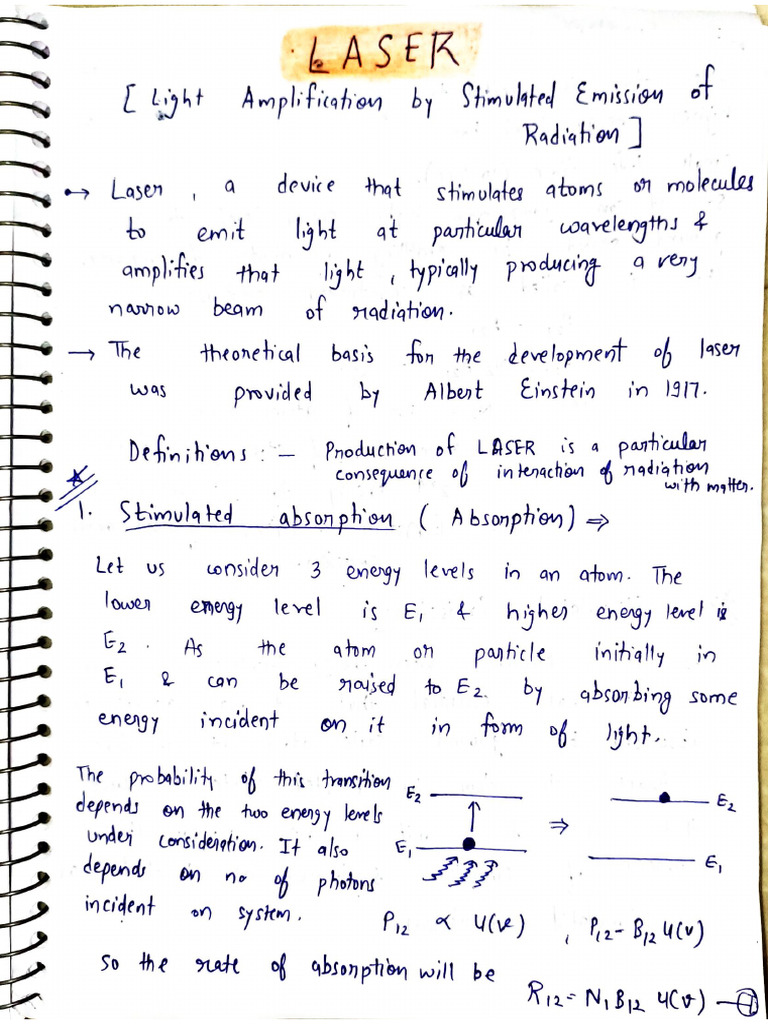 LASER
[ Light Amplification by Stimulated Emission of
Radiation ]
→ Laser, a device that stimulates atoms or molecules
to emit light at particular wavelengths &
amplifies that light, typically producing a very
narrow beam of radiation.
→ The theoretical basis for the development of laser
was provided by Albert Einstein in 1917.
Definitions :- Production of LASER is a particular
consequence of interaction of radiation
with matter.
1. Stimulated absorption ( Absorption) ⇒
Let us consider 3 energy levels in an atom. The
lower energy level is E₁ & higher energy level is
E₂. As the atom or particle initially in
E₁ & can be raised to E₂ by absorbing some
energy incident on it in form of light.
The probability of this transition
depends on the two energy levels
under consideration. It also
depends on no of photons
incident on system.
E₂
E₁
⇒
E₂
E₁
P₁₂ ∝ u(ν) , P₁₂ = B₁₂ u(ν)
so the rate of absorption will be
R₁₂ = N₁ B₁₂ u(ν) — ①